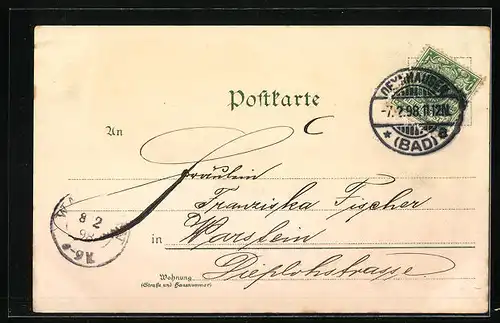 OEYNHAUSEN
-7.2.98.11-12V.
* (BAD) a
Postkarte
C
An
Fräulein
Franziska Fischer
8 2
98
in Warstein
Dieplohstrasse
Wohnung
(Straße und Hausnummer)